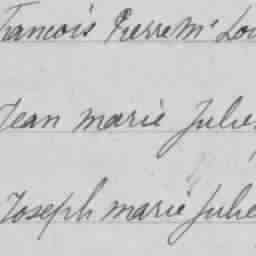 François Pierre Mie Lou
Jean marie Jules
Joseph marie Jules